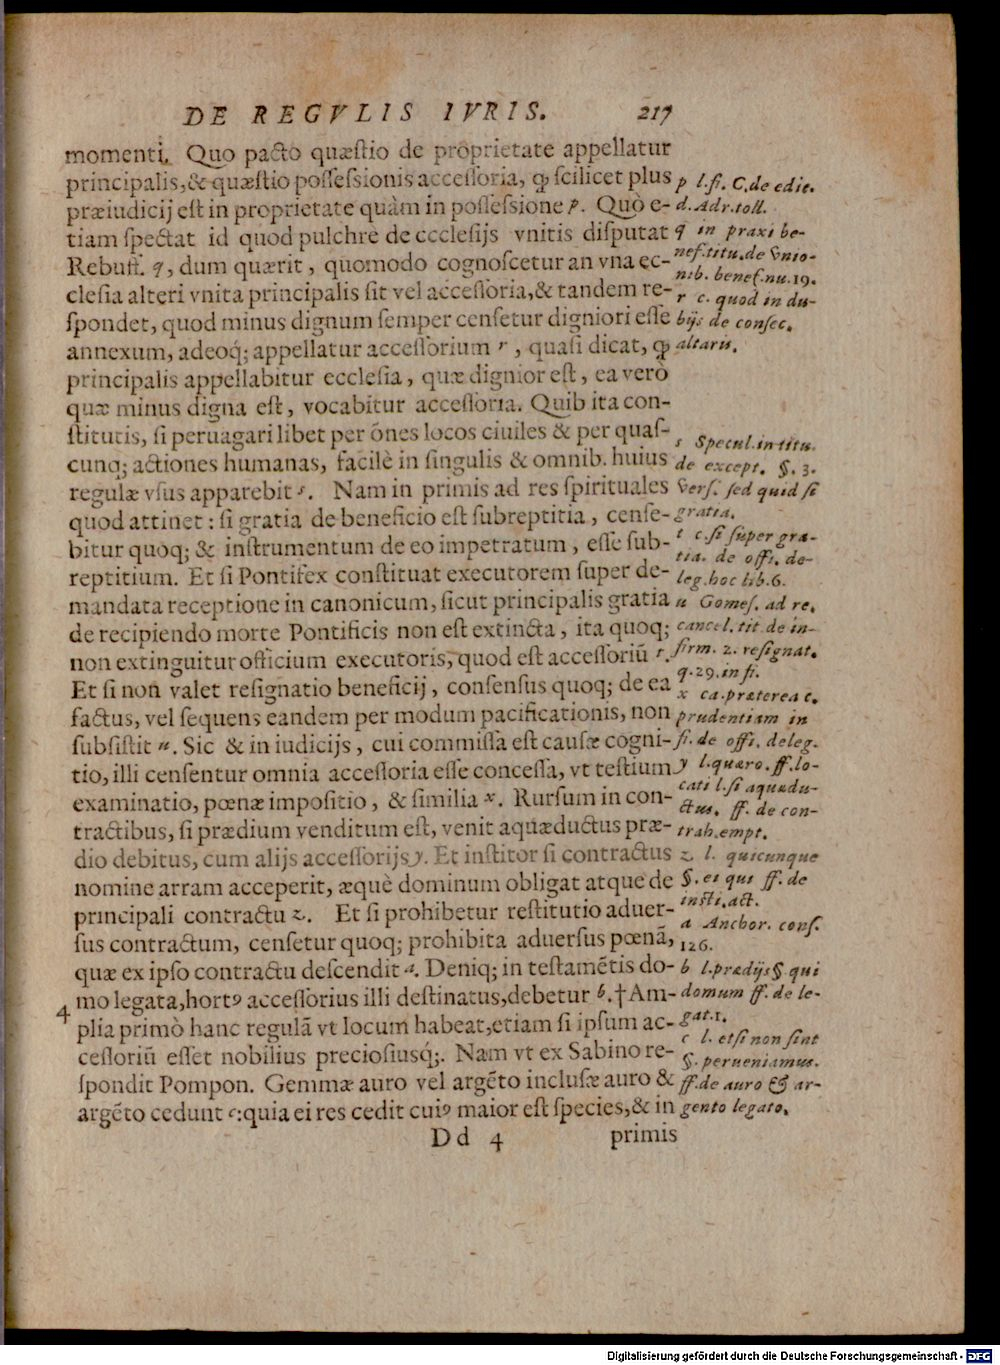 DE REGVLIS IVRIS. 217
momenti. Quo pacto quæſtio de proprietate appellatur
principalis, & quæſtio poſſeſsionis acceſſoria, ꝙ ſcilicet plus
præiudicij eſt in proprietate quàm in poſſeſsione p. Quò e-
tiam ſpectat id quod pulchrè de eccleſijs vnitis diſputat
Rebuff. q, dum quærit, quomodo cognoſcetur an vna ec-
cleſia alteri vnita principalis ſit vel acceſſoria, & tandem re-
ſpondet, quod minus dignum ſemper cenſetur digniori eſſe
annexum, adeoq́; appellatur acceſſorium r, quaſi dicat, ꝙ
principalis appellabitur eccleſia, quæ dignior eſt, ea verò
quæ minus digna eſt, vocabitur acceſſoria. Quib ita con-
ſtitutis, ſi peruagari libet per õnes locos ciuiles & per quaſ-
cunq; actiones humanas, facilè in ſingulis & omnib. huius
regulæ vſus apparebit s. Nam in primis ad res ſpirituales
quod attinet: ſi gratia de beneficio eſt ſubreptitia, cenſe-
bitur quoq; & inſtrumentum de eo impetratum, eſſe ſub-
reptitium. Et ſi Pontifex conſtituat executorem ſuper de-
mandata receptione in canonicum, ſicut principalis gratia
de recipiendo morte Pontificis non eſt extincta, ita quoq;
non extinguitur officium executoris, quod eſt acceſſoriũ t.
Et ſi non valet reſignatio beneficij, conſenſus quoq; de ea
factus, vel ſequens eandem per modum pacificationis, non
ſubſiſtit u. Sic & in iudicijs, cui commiſſa eſt cauſæ cogni-
tio, illi cenſentur omnia acceſſoria eſſe conceſſa, vt teſtium
examinatio, pœnæ impoſitio, & ſimilia x. Rurſum in con-
tractibus, ſi prædium venditum eſt, venit aquæductus præ-
dio debitus, cum alijs acceſſorijs y. Et inſtitor ſi contractus
nomine arram acceperit, æquè dominum obligat atque de
principali contractu z. Et ſi prohibetur reſtitutio aduer-
ſus contractum, cenſetur quoq; prohibita aduerſus pœnã,
quæ ex ipſo contractu deſcendit a. Deniq; in teſtamẽtis do-
mo legata, hortꝰ acceſſorius illi deſtinatus, debetur b. † Am-
4
plia primò hanc regulã vt locum habeat, etiam ſi ipſum ac-
ceſſoriũ eſſet nobilius precioſiusq́;. Nam vt ex Sabino re-
ſpondit Pompon. Gemmæ auro vel argẽto incluſæ auro &
argẽto cedunt c: quia ei res cedit cuiꝰ maior eſt ſpecies, & in
Dd 4 primis
p l. fi. C. de edic.
d. Adr. toll.
q in praxi be-
nef. titu. de Vnio-
nib. benef. nu. 19.
r c. quod in du-
bijs de conſec.
altaris.
s Specul. in titu.
de except. §. 3.
Verſ. ſed quid ſi
gratia.
t c. ſi ſuper gra-
tia. de offi. de-
leg. hoc lib. 6.
u Gomeſ. ad re.
cancel. tit. de in-
firm. 2. reſignat.
q. 29. in fi.
x ca. præterea c.
prudentiam in
fi. de offi. deleg.
y l. quæro. ff. lo-
cati l. ſi aquædu-
ctus. ff. de con-
trah. empt.
z l. quicunque
§. ei qui ff. de
inſti. act.
a Anchor. conſ.
126.
b l. prædijs §. qui
domum ff. de le-
gat. 1.
c l. etſi non ſint
§. perueniamus.
ff. de auro & ar-
gento legato.
Digitalisierung gefördert durch die Deutsche Forschungsgemeinschaft - DFG